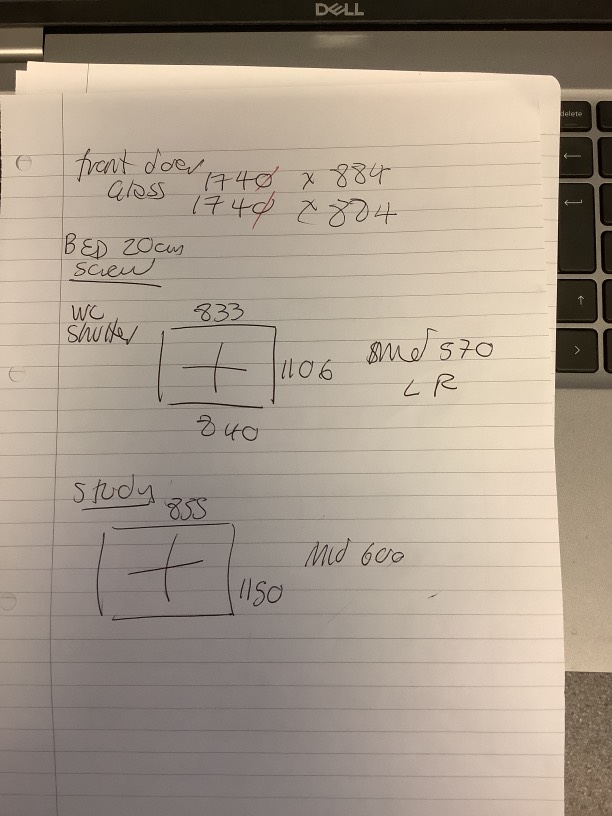 DELL
delete
front door
Glass 1740 x 884
1740 x 884
BED 20cm
screw
WC
Shutter
833
1106
840
Md 570
L R
Study
855
1150
Md 600